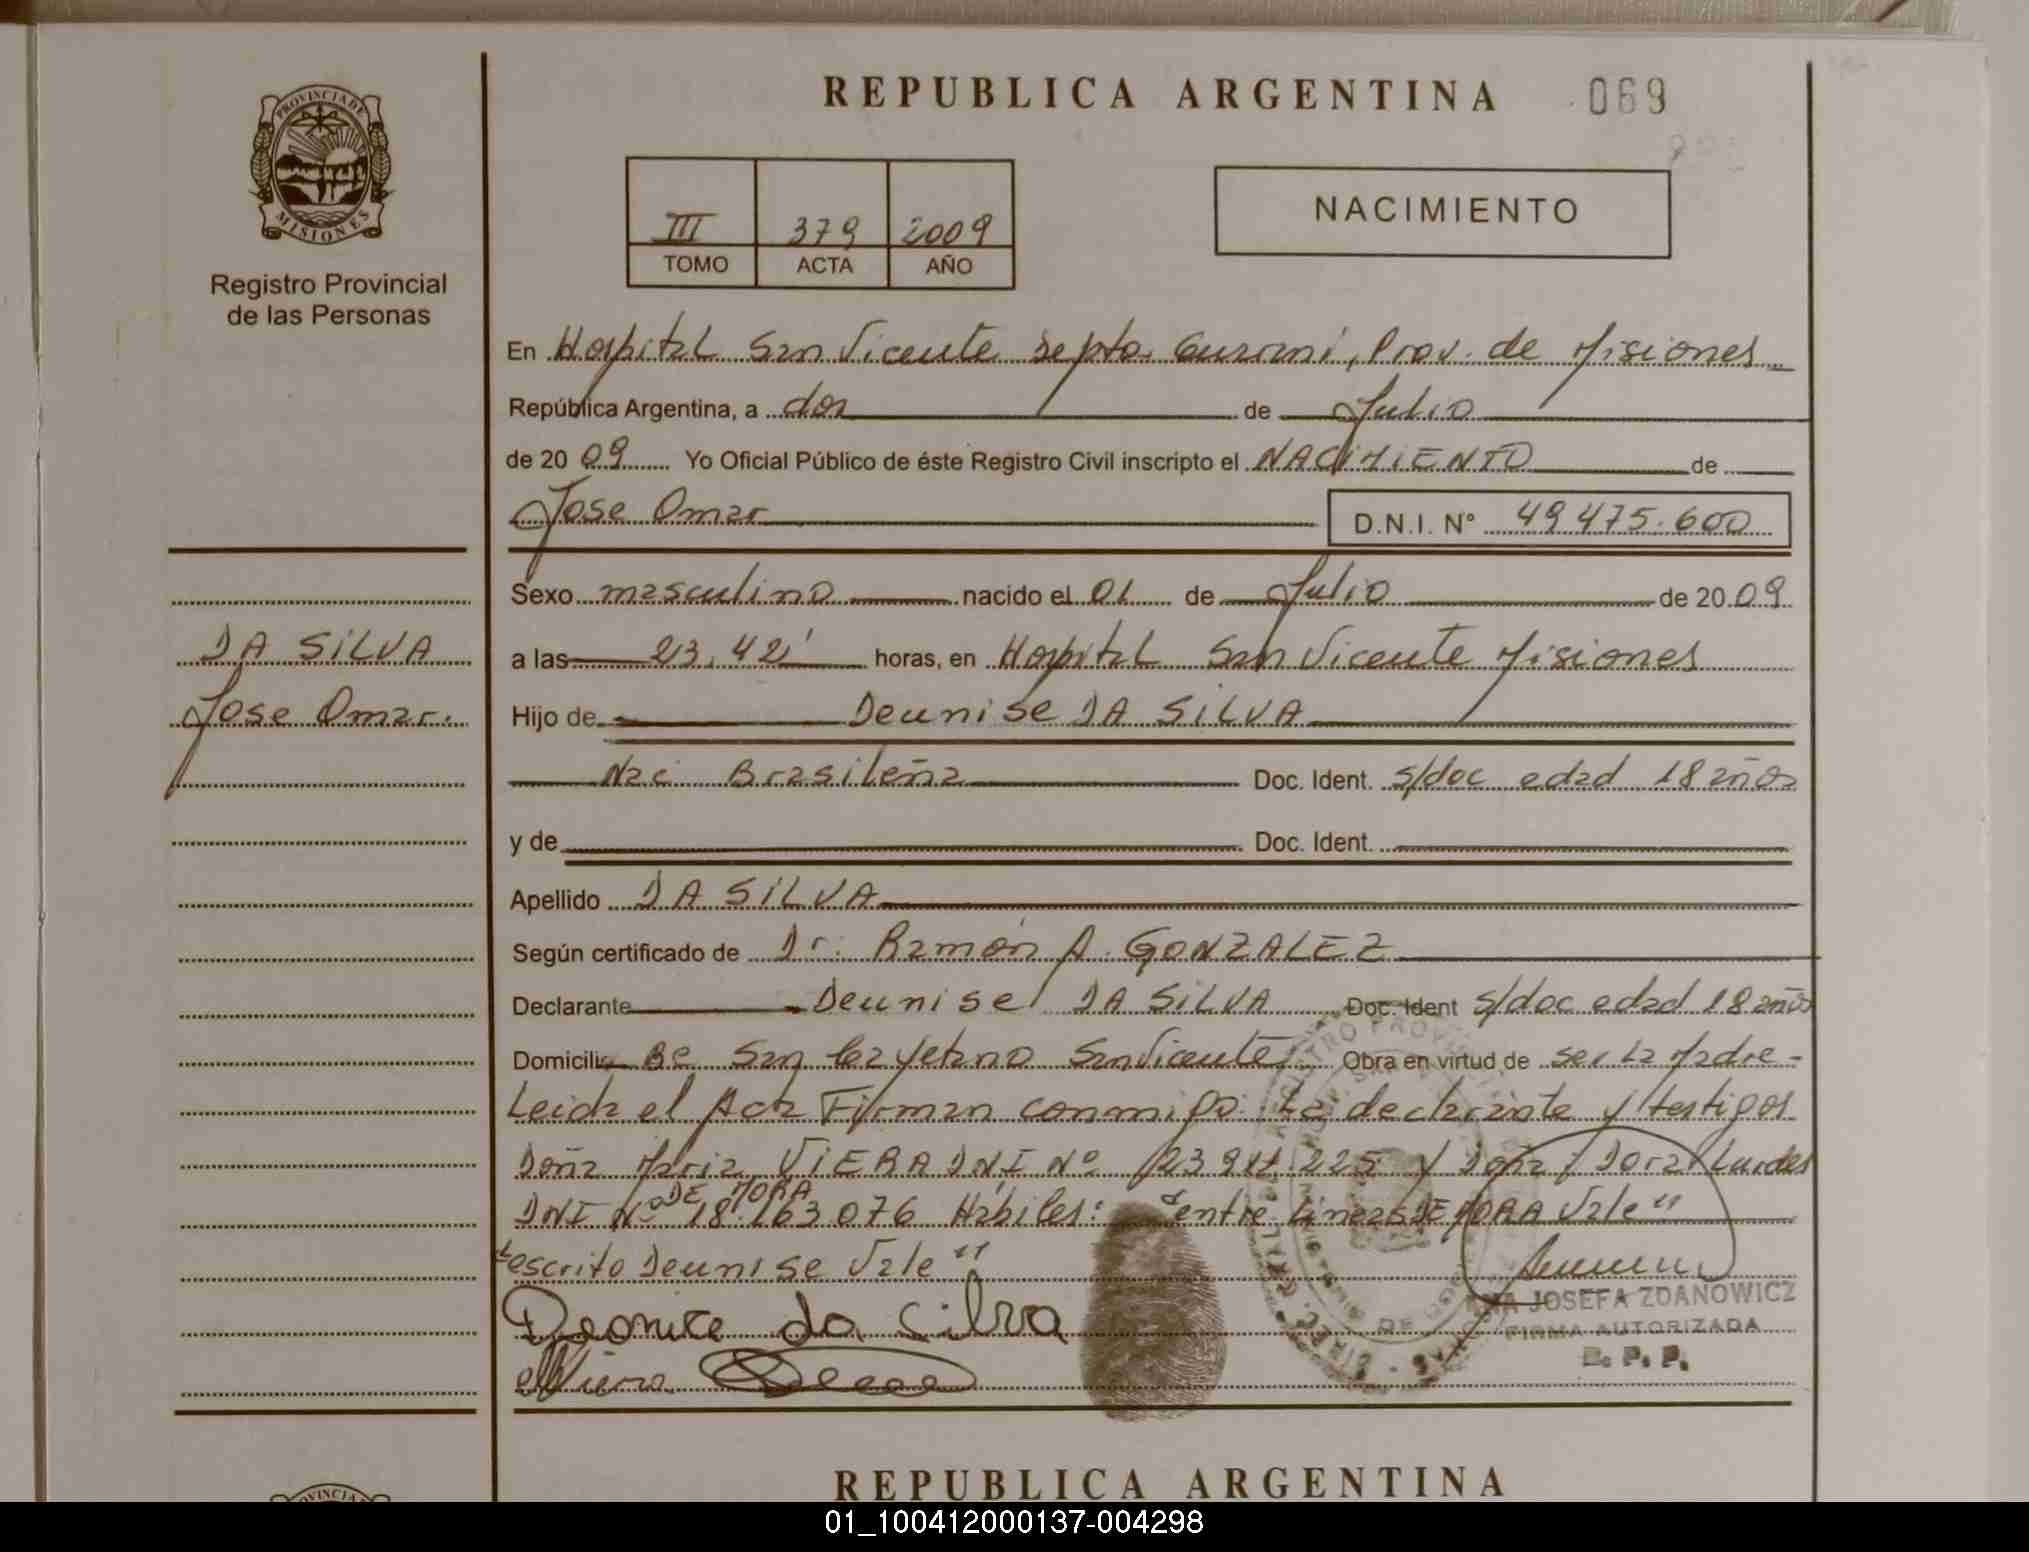 REPUBLICA ARGENTINA 069
PROVINCIA DE
MISIONES
Registro Provincial
de las Personas
III 379 2009
TOMO ACTA AÑO
NACIMIENTO
En Hospital San Vicente Depto. Guarani, Prov. de Misiones
República Argentina, a dos de Julio
de 2009 Yo Oficial Público de éste Registro Civil inscripto el NACIMIENTO de
Jose Omar D.N.I. N° 49475.600
Sexo masculino nacido el 01 de Julio de 2009
DA SILVA
Jose Omar.
a las 23,42' horas, en Hospital San Vicente Misiones
Hijo de Deunise DA SILVA
Nac. Brasileña Doc. Ident. s/doc edad 18 años
y de Doc. Ident.
Apellido DA SILVA
Según certificado de Dr. Ramón A. GONZALEZ
Declarante Deunise DA SILVA Doc. Ident s/doc edad 18 años
Domicilio Bº San Cayetano San Vicente Obra en virtud de ser La Madre-
Leida el Acta Firman conmigo La declarante y testigos
Doña Maria VIERA DNI Nº 225 y Doña Dora Lurdes
DE MORA
DNI Nº 18.163.076 Hábiles: "entre Lineas DE MORA Vale"
"escrito Deunise Vale"
Deonice da Silva
Viera
JOSEFA ZDANOWICZ
FIRMA AUTORIZADA
R. P. P.
REPUBLICA ARGENTINA
01_100412000137-004298